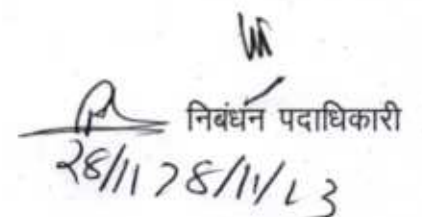 निबंधन पदाधिकारी
28/11 28/11/13